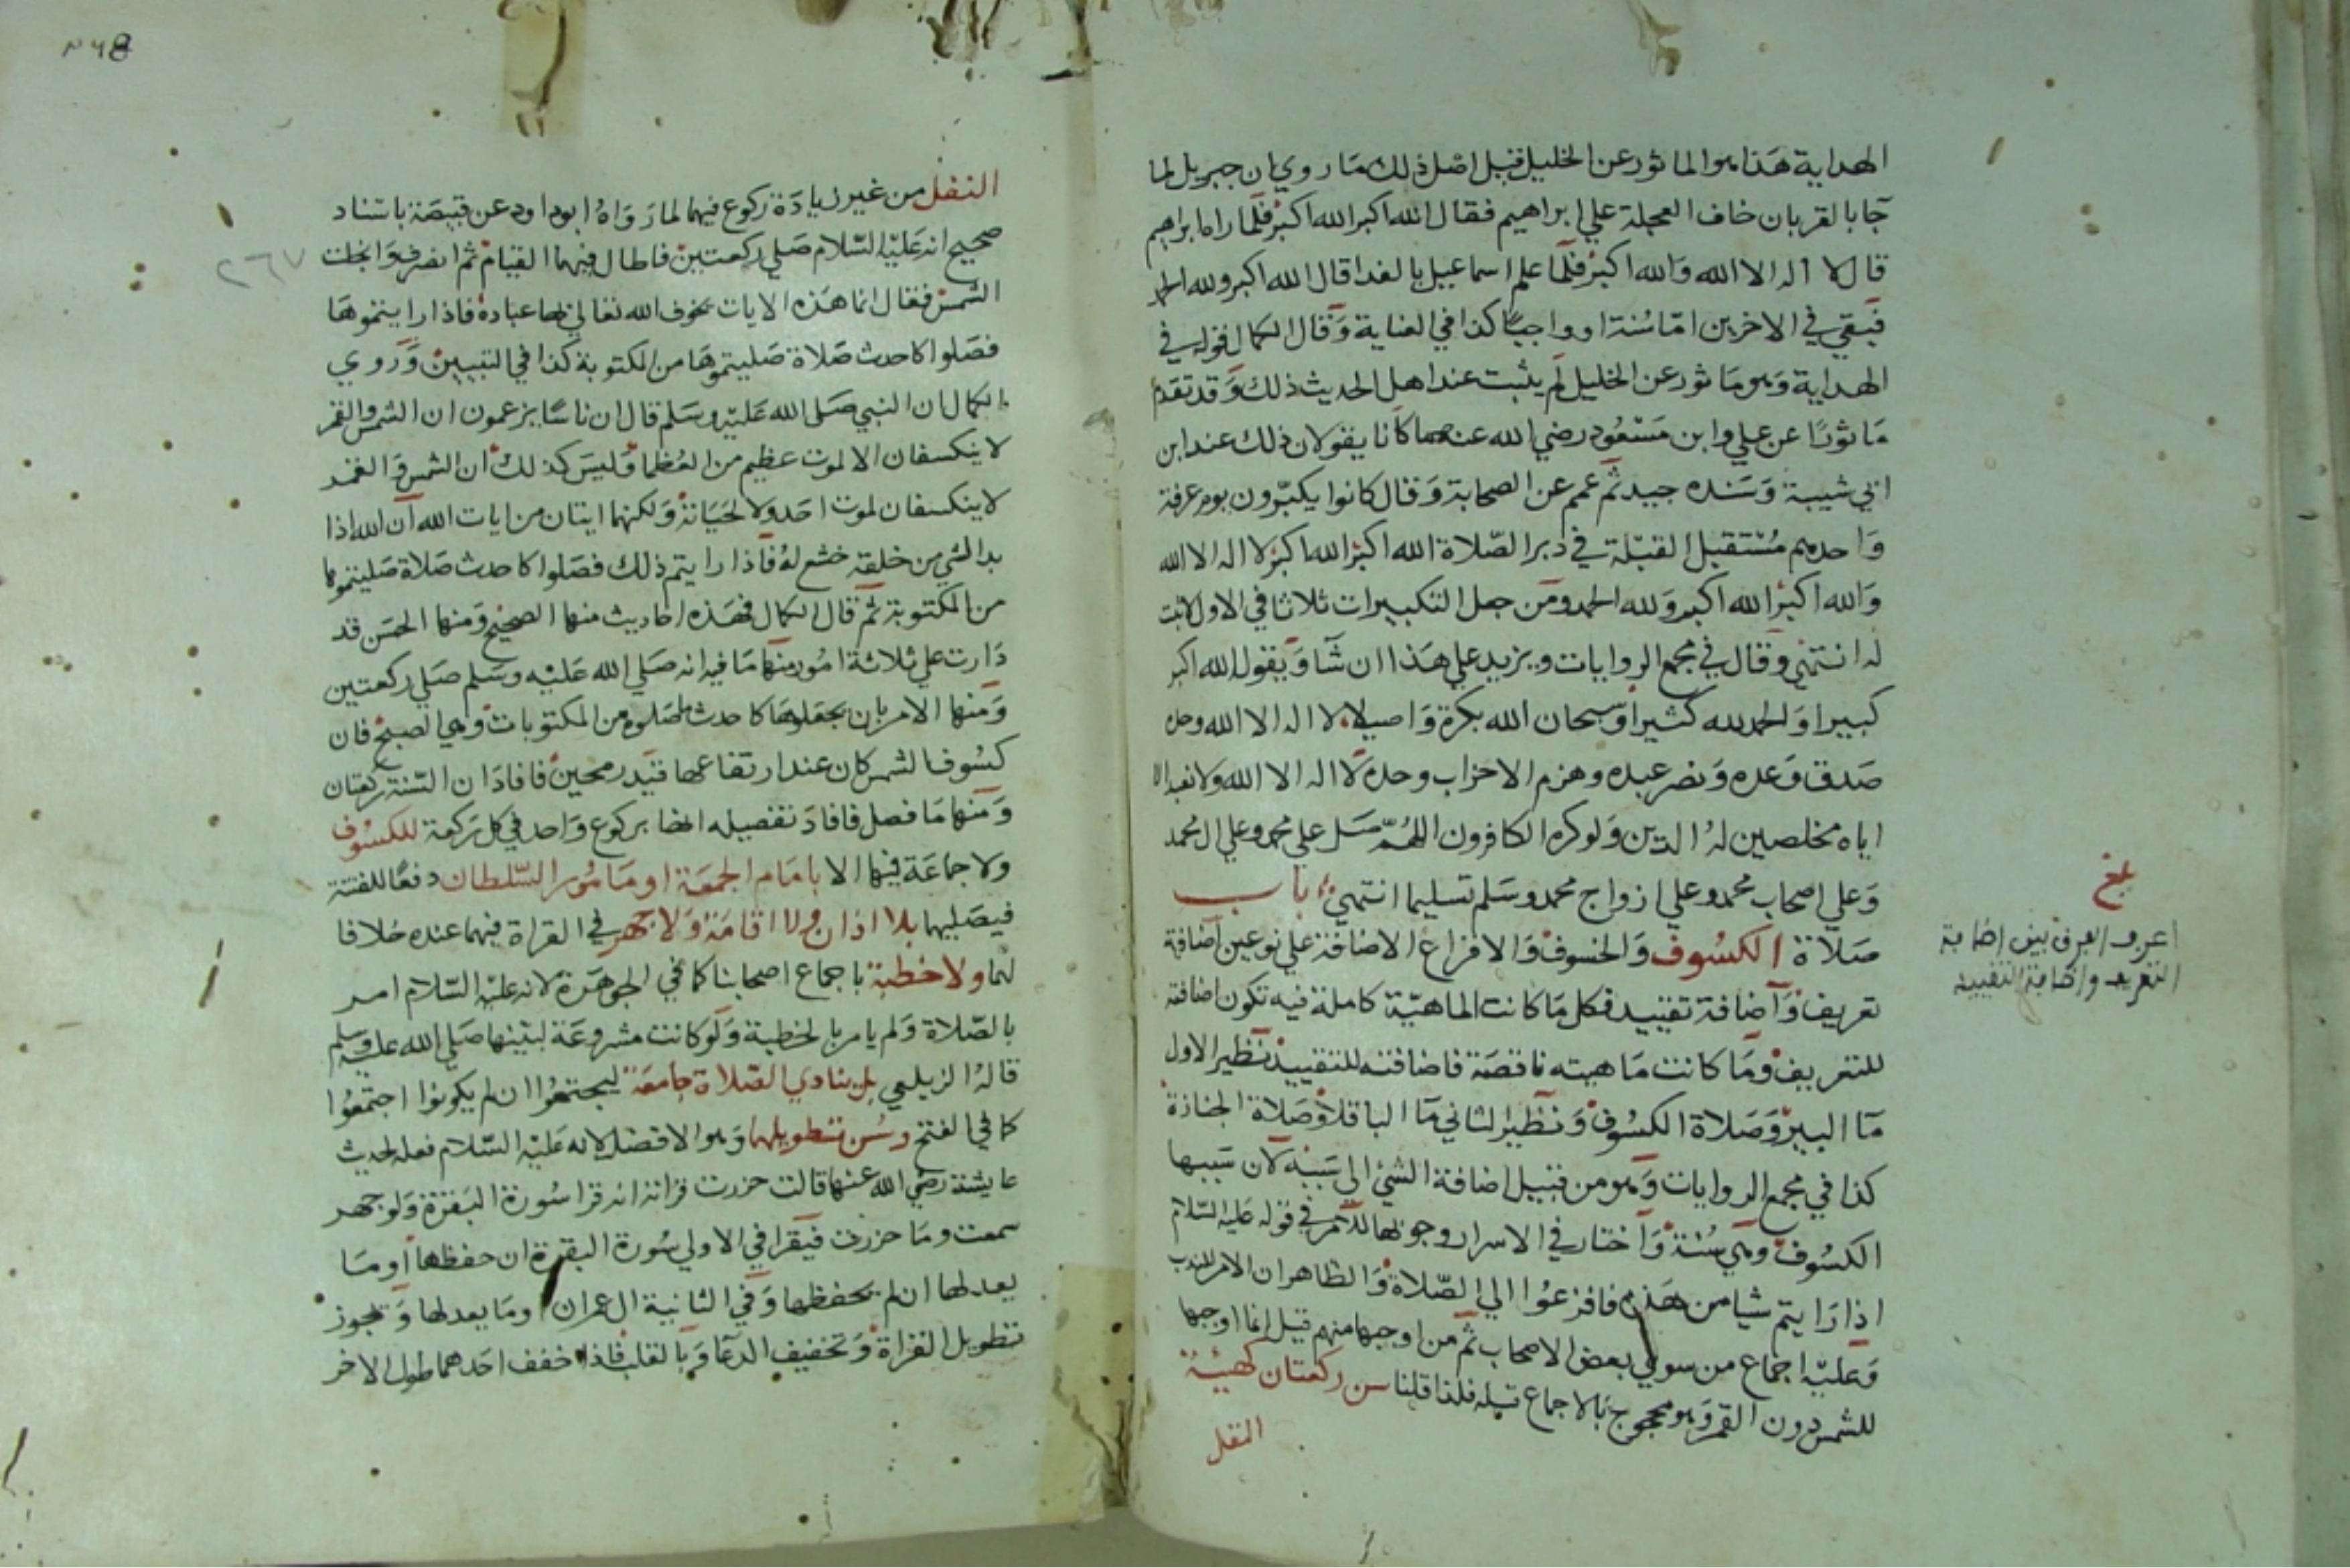 الهداية هذا هو الماثور عن الخليل قيل اصل ذلك ما روي ان جبريل لما
جا بالقربان خاف العجلة علي ابراهيم فقال الله اكبر الله اكبر فلما راه ابراهيم
قال لا اله الا الله والله اكبر فلما علم اسماعيل بالفدا قال الله اكبر ولله الحمد
فبقي في الاخرين اما سنة او واجبا كذا في العناية وقال الكمال قوله في
الهداية وهو ماثور عن الخليل لم يثبت عند اهل الحديث ذلك وقد تقدم
ماثورا عن علي وابن مسعود رضي الله عنهما كانا يقولان ذلك عند ابن
ابي شيبة وسنده جيد ثم عمم عن الصحابة وقال كانوا يكبرون يوم عرفة
واحدهم مستقبل القبلة في دبر الصلاة الله اكبر الله اكبر لا اله الا الله
والله اكبر الله اكبر ولله الحمد ومن جعل التكبيرات ثلاثا في الاول لا ثبت
له انتهي وقال في مجمع الروايات ويزيد علي هذا ان شا ويقول الله اكبر
كبيرا والحمد لله كثيرا وسبحان الله بكرة واصيلا لا اله الا الله وحده
صدق وعده ونصر عبده وهزم الاحزاب وحده لا اله الا الله ولا نعبد الا
اياه مخلصين له الدين ولو كره الكافرون اللهم صل علي محمد وعلي ال محمد
وعلي اصحاب محمد وعلي ازواج محمد وسلم تسليما انتهي باب
صلاة الكسوف والخسوف والافزاع الاضافة علي نوعين اضافة
تعريف واضافة تقييد فكل ما كانت الماهية كاملة فيه تكون اضافته
للتعريف وما كانت ماهيته ناقصة فاضافته للتقييد نظير الاول
ما البير وصلاة الكسوف ونظير الثاني ما الباقلا وصلاة الجنازة
كذا في مجمع الروايات وهو من قبيل اضافة الشئ الي سببه لان سببها
الكسوف وهي سنة واختار في الاسرار وجوبها للامر في قوله عليه السلام
اذا رايتم شيا من هذه فافزعوا الي الصلاة والظاهر ان الامر للندب
وعليه اجماع من سوي بعض الاصحاب ثم من اوجبها منهم قيل انما اوجبها
للشمس دون القمر وهو محجوج بالاجماع قبله فلذا قلنا سن ركعتان كهيئة
النفل
بلغ
اعرف الفرق بين اضافة
التعريف واضافة التقييد
٢٦8
٢٦٧
النفل من غير زيادة ركوع فيهما لما رواه ابوداود عن قبيصة باسناد
صحيح انه عليه السلام صلي ركعتين فاطال فيهما القيام ثم انصرف وانجلت
الشمس فقال انما هذه الايات يخوف الله تعالي بها عباده فاذا رايتموها
فصلوا كاحدث صلاة صليتموها من المكتوبة كذا في التبيين وروي
الكمال ان النبي صلي الله عليه وسلم قال ان ناسا يزعمون ان الشمس والقمر
لا ينكسفان الا لموت عظيم من العظما وليس كذلك ان الشمس والقمر
لا ينكسفان لموت احد ولا لحياته ولكنهما ايتان من ايات الله ان الله اذا
بدا لشي من خلقه خشع له فاذا رايتم ذلك فصلوا كاحدث صلاة صليتموها
من المكتوبة ثم قال الكمال فهذه احاديث منها الصحيح ومنها الحسن قد
دارت علي ثلاثة امور منها ما فيه انه صلي الله عليه وسلم صلي ركعتين
ومنها الامر بان يجعلوها كاحدث ما صلوه من المكتوبات وهي الصبح فان
كسوف الشمس كان عند ارتفاعها قيد رمحين فافاد ان السنة ركعتان
ومنها ما فصل فافاد تفصيله انها بركوع واحد في كل ركعة للكسوف
ولا جماعة فيها الا بامام الجمعة او مامور السلطان دفعا للفتنة
فيصليهما بلا اذان ولا اقامة ولا جهر في القراة فيهما عنده خلافا
لهما ولا خطبة باجماع اصحابنا كما في الجوهرة لانه عليه السلام امر
بالصلاة ولم يامر بالخطبة ولو كانت مشروعة لبينها صلي الله عليه وسلم
قاله الزيلعي بل ينادي الصلاة جامعة ليجتمعوا ان لم يكونوا اجتمعوا
كما في الفتح وسن تطويلهما وهو الافضل لانه عليه السلام فعله لحديث
عايشة رضي الله عنها قالت حزرت قراته انه قرا سورة البقرة ولو جهر
سمعت وما حزرت فيقرا في الاولي سورة البقرة ان حفظها او ما
يعدلها ان لم يحفظها وفي الثانية ال عمران او ما يعدلها ويجوز
تطويل القراة وتخفيف الدعا وبالقلب فاذا خفف احدهما طول الاخر